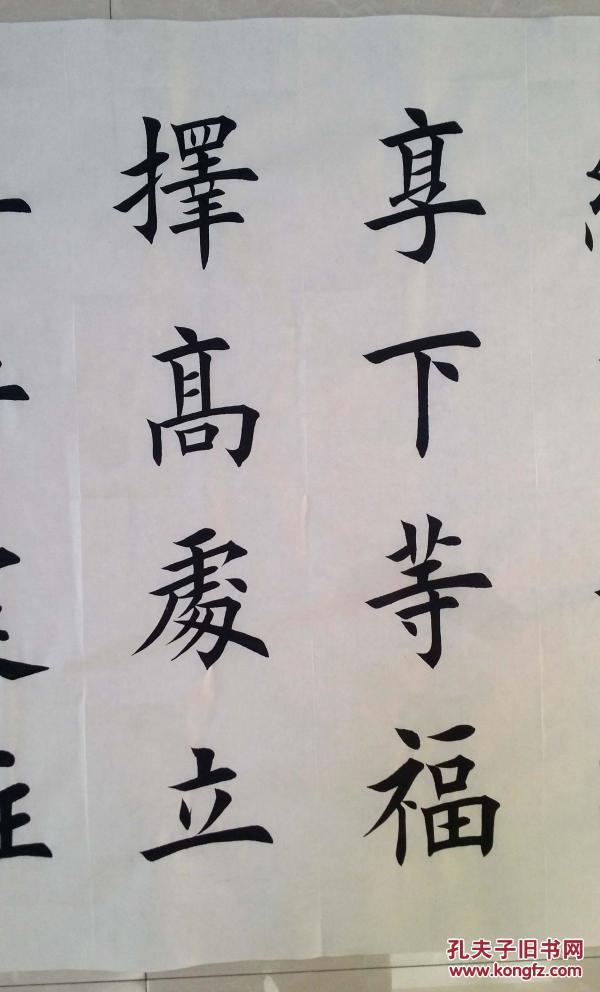 享下等福
擇髙處立
孔夫子旧书网
www.kongfz.com